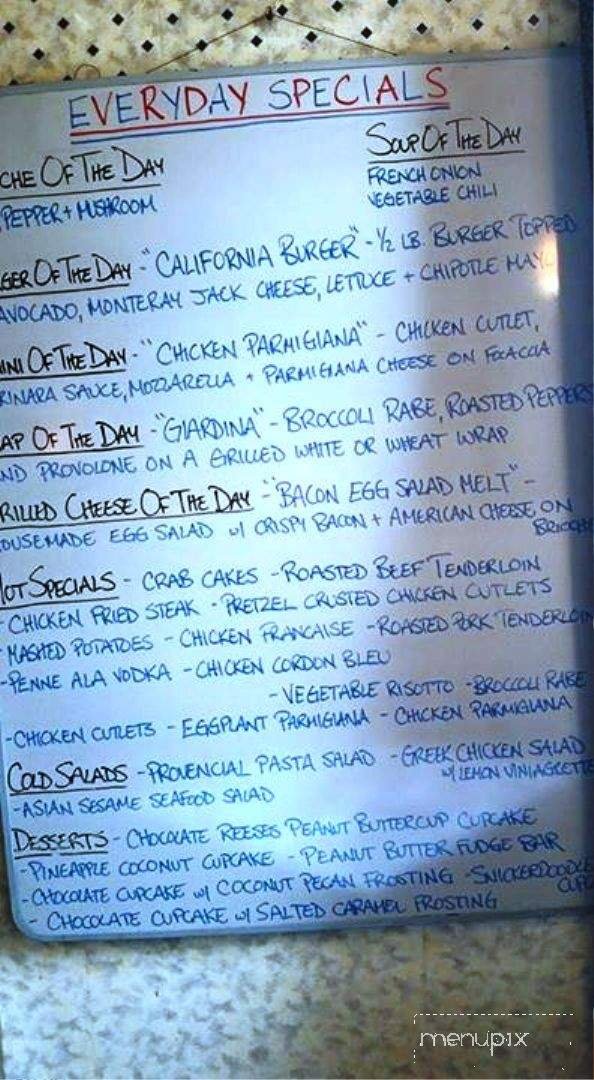 EVERYDAY SPECIALS
CHE OF THE DAY
PEPPER + MUSHROOM
SOUP OF THE DAY
FRENCH ONION
VEGETABLE CHILI
GER OF THE DAY - "CALIFORNIA BURGER" - 1/2 LB. BURGER TOPPED
AVOCADO, MONTERAY JACK CHEESE, LETTUCE + CHIPOTLE MAY
INI OF THE DAY - "CHICKEN PARMIGIANA" - CHICKEN CUTLET,
RINARA SAUCE, MOZZARELLA + PARMIGIANA CHEESE ON FOCACCIA
AP OF THE DAY - "GIARDINA" - BROCCOLI RABE, ROASTED PEPPERS
ND PROVOLONE ON A GRILLED WHITE OR WHEAT WRAP
RILLED CHEESE OF THE DAY - "BACON EGG SALAD MELT" -
OUSEMADE EGG SALAD w/ CRISPY BACON + AMERICAN CHEESE ON
HOT SPECIALS - CRAB CAKES - ROASTED BEEF TENDERLOIN
- CHICKEN FRIED STEAK - PRETZEL CRUSTED CHICKEN CUTLETS
- MASHED POTATOES - CHICKEN FRANCAISE - ROASTED PORK TENDERLOIN
- PENNE ALA VODKA - CHICKEN CORDON BLEU
- VEGETABLE RISOTTO - BROCCOLI RABE
- CHICKEN CUTLETS - EGGPLANT PARMIGIANA - CHICKEN PARMIGIANA
COLD SALADS - PROVENCIAL PASTA SALAD - GREEK CHICKEN SALAD
w/ LEMON VINIAGRETTE
- ASIAN SESAME SEAFOOD SALAD
DESSERTS - CHOCOLATE REESES PEANUT BUTTERCUP CUPCAKE
- PINEAPPLE COCONUT CUPCAKE - PEANUT BUTTER FUDGE BAR
- CHOCOLATE CUPCAKE w/ COCONUT PECAN FROSTING - SNICKERDOODLE
CUPC
- CHOCOLATE CUPCAKE w/ SALTED CARAMEL FROSTING
menupix